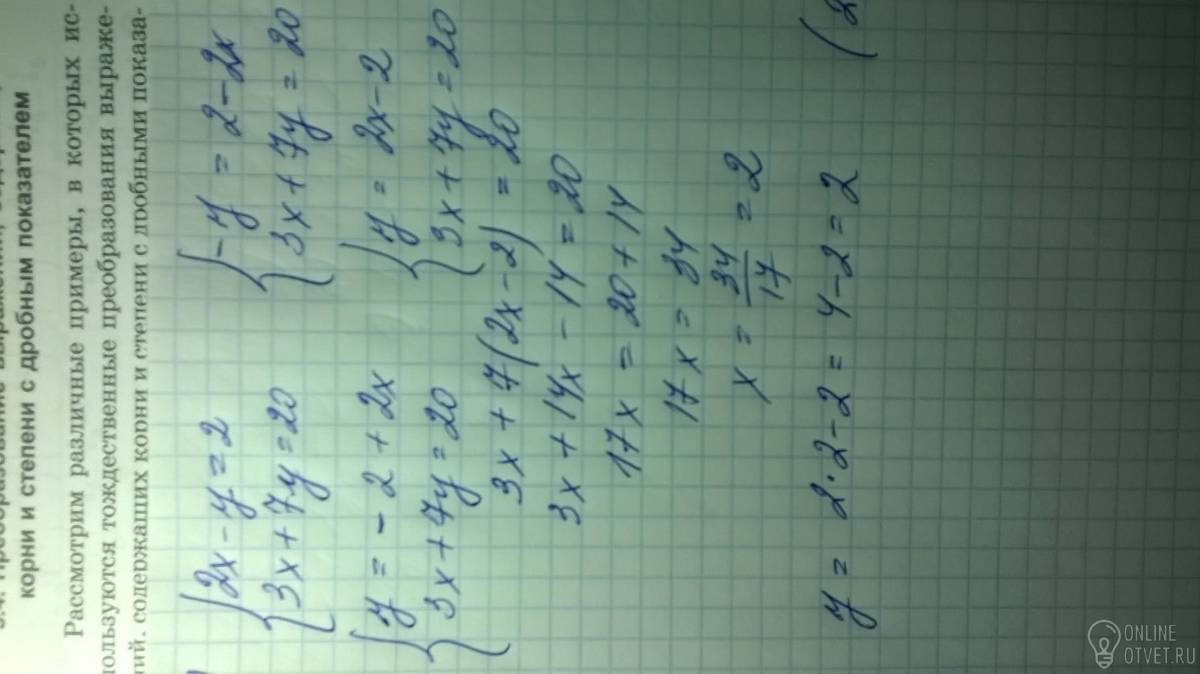 корни и степени с дробным показателем
Рассмотрим различные примеры, в которых ис-
пользуются тождественные преобразования выраже-
ний, содержащих корни и степени с дробными показа-
{2x - y = 2
{3x + 7y = 20
{-y = 2 - 2x
{3x + 7y = 20
{y = -2 + 2x
{3x + 7y = 20
{y = 2x - 2
{3x + 7y = 20
3x + 7(2x - 2) = 20
3x + 14x - 14 = 20
17x = 20 + 14
17x = 34
x = 34/17 = 2
y = 2·2 - 2 = 4 - 2 = 2
(2
ONLINE
OTVET.RU